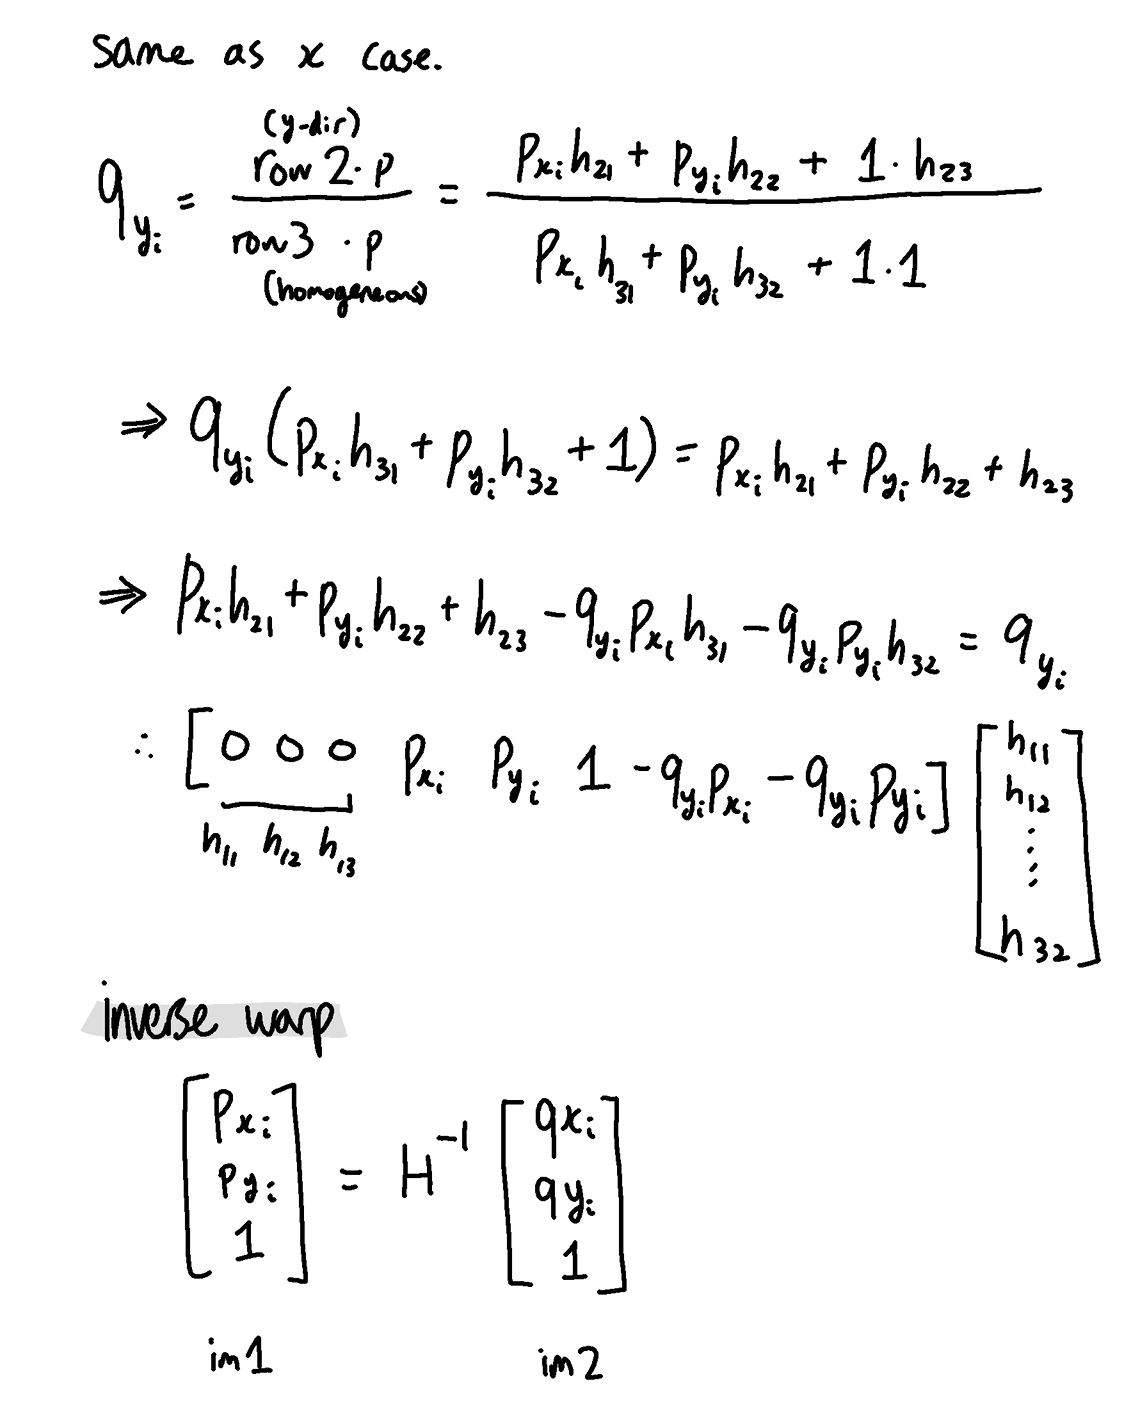 same as x case.
q_{y_i} = \frac{\overset{(y-dir)}{row 2 \cdot p}}{\underset{(homogeneous)}{row 3 \cdot p}} = \frac{p_{x_i} h_{21} + p_{y_i} h_{22} + 1 \cdot h_{23}}{p_{x_i} h_{31} + p_{y_i} h_{32} + 1 \cdot 1}
⇒ q_{y_i} (p_{x_i} h_{31} + p_{y_i} h_{32} + 1) = p_{x_i} h_{21} + p_{y_i} h_{22} + h_{23}
⇒ p_{x_i} h_{21} + p_{y_i} h_{22} + h_{23} - q_{y_i} p_{x_i} h_{31} - q_{y_i} p_{y_i} h_{32} = q_{y_i}
∴ [\underset{h_{11} h_{12} h_{13}}{0 0 0} p_{x_i} p_{y_i} 1 - q_{y_i} p_{x_i} - q_{y_i} p_{y_i}] \begin{bmatrix} h_{11} \\ h_{12} \\ \vdots \\ h_{32} \end{bmatrix}
inverse warp
\begin{bmatrix} p_{x_i} \\ p_{y_i} \\ 1 \end{bmatrix} = H^{-1} \begin{bmatrix} q_{x_i} \\ q_{y_i} \\ 1 \end{bmatrix}
im1 im2